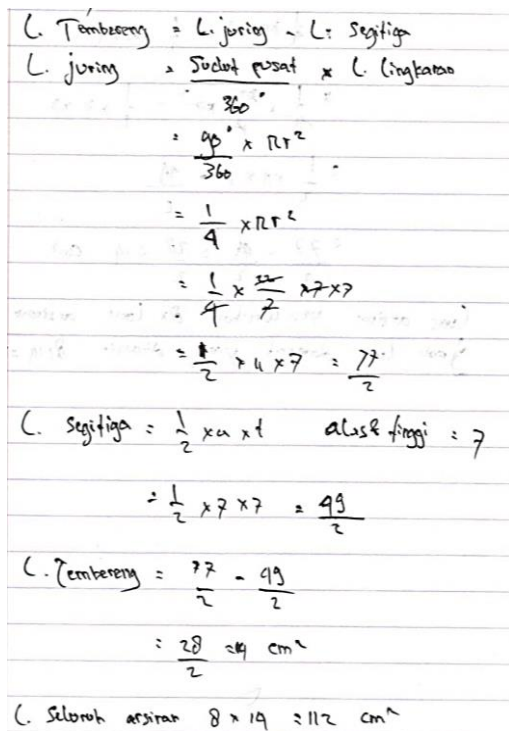 L. Tembereng = L. juring - L. Segitiga
L. juring = Sudut pusat × L. lingkaran
360°
= 90° × πr²
360
= 1 × πr²
4
= 1 × 22 × 7 × 7
4 7
= 1 × 11 × 7 = 77
2 2
L. Segitiga = 1/2 × a × t alas & tinggi = 7
= 1/2 × 7 × 7 = 49
2
L. Tembereng = 77 - 49
2 2
= 28 = 14 cm²
2
L. Seluruh arsiran 8 × 14 = 112 cm²